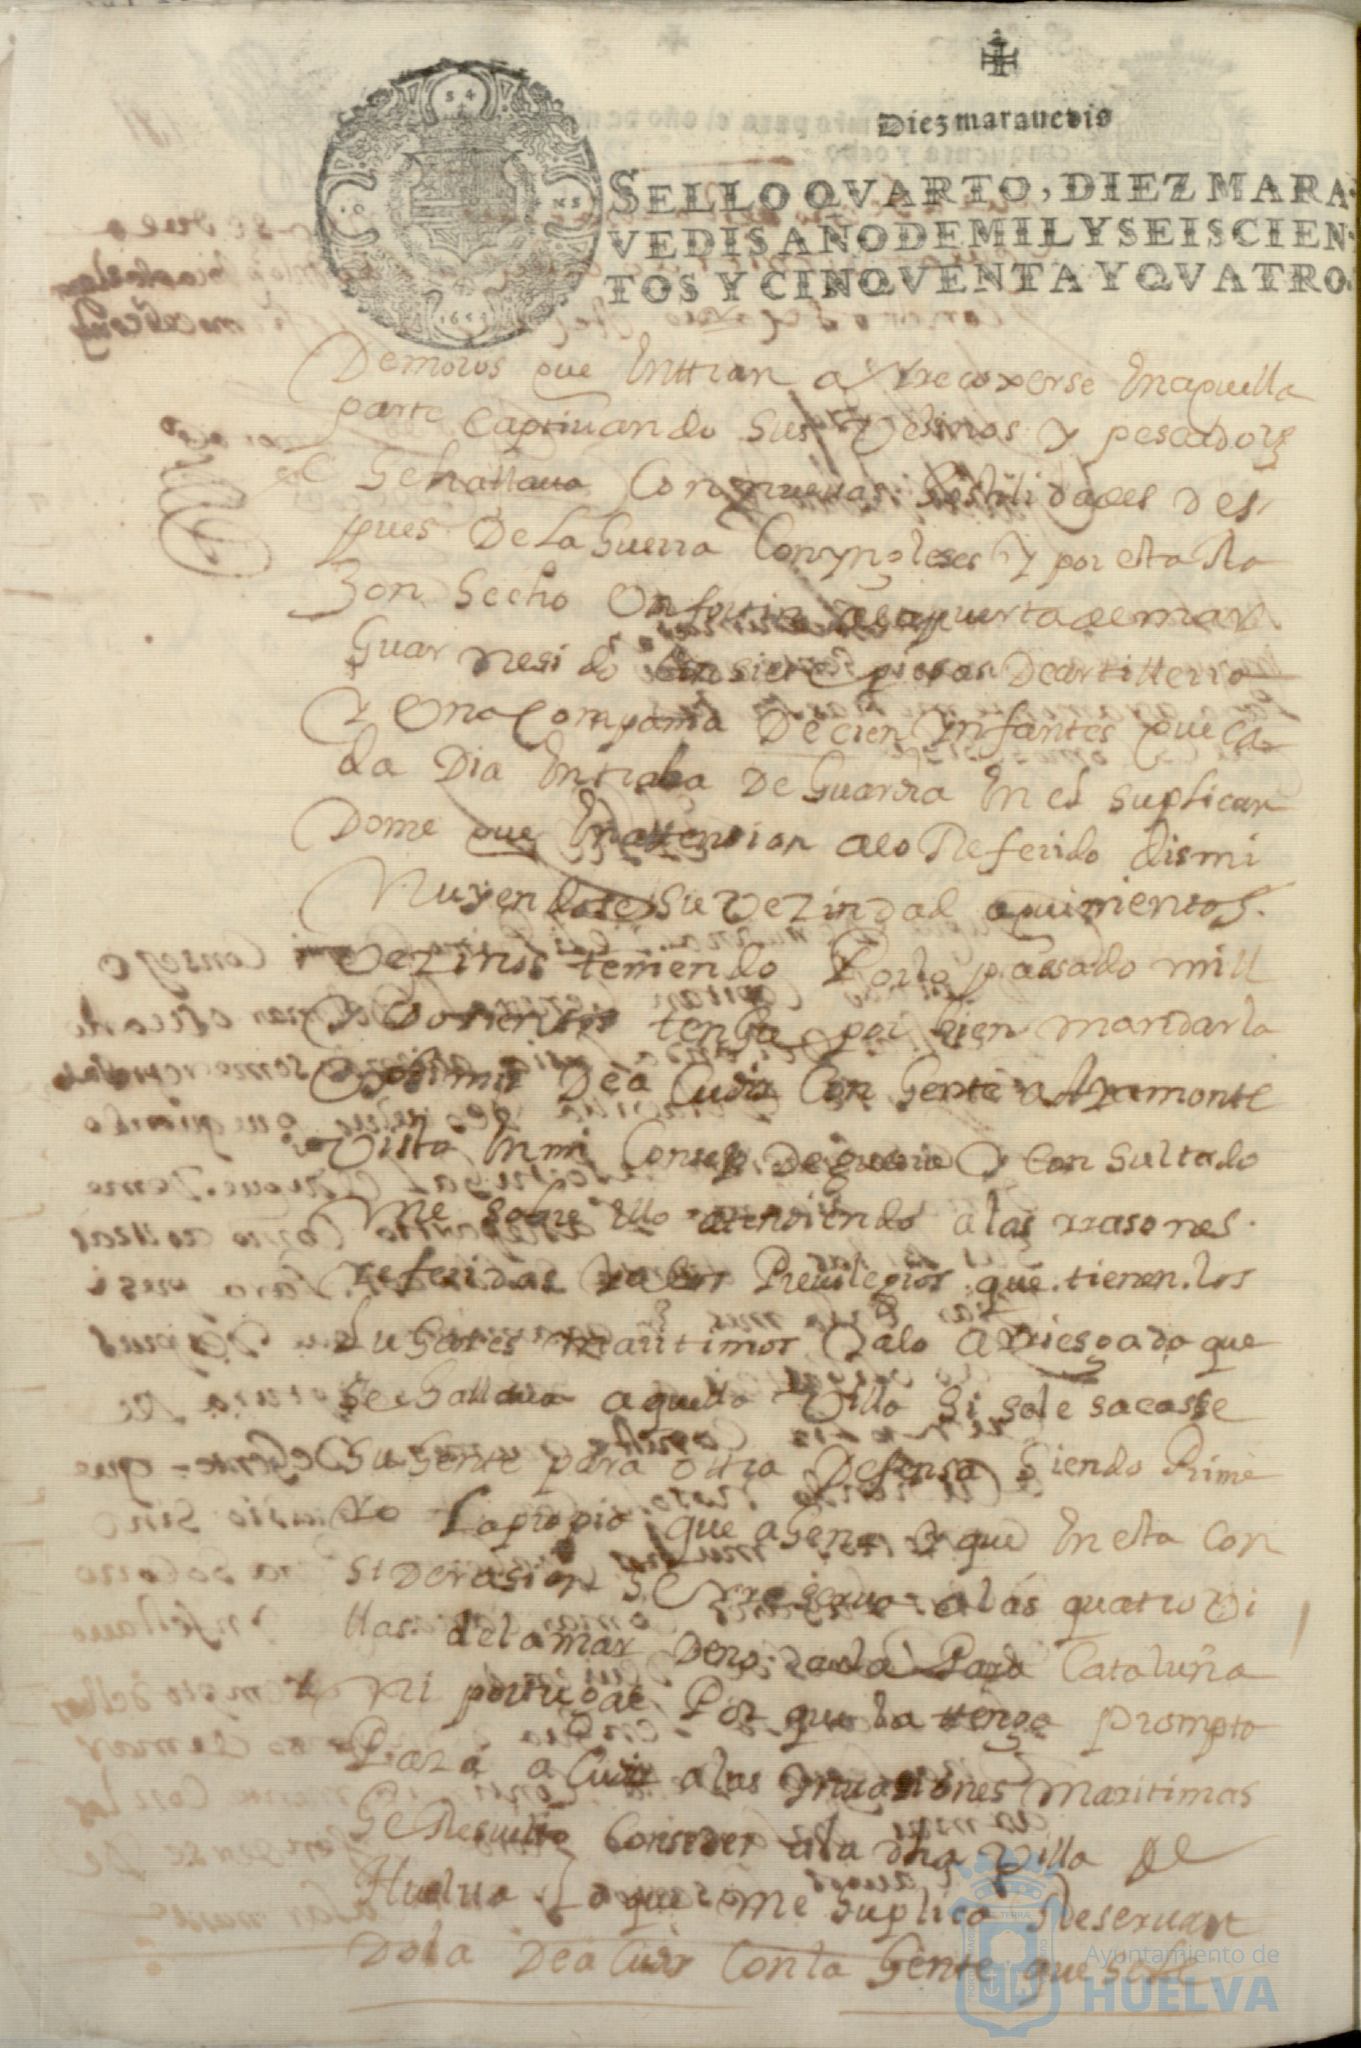 Diez maravedis
SELLO QVARTO, DIEZ MARA-
VEDIS AÑO DE MIL Y SEISCIEN-
TOS Y CINQVENTA Y QVATRO.
De moros que Inttran a rrecoxerse Inaquella
parte captiuando sus Vesinos y pescadores
se hallaua Con nueuas hostilidades des
pues De la Guerra Con yngleses y por esta Ra
zon hecho Vn fortin a la puerta de mar
Guarnesido Con siete piesas De artilleria
y Vna Compania De cien Ynfantes que Ca
da Dia Intraba De Guardia In el suplican
Dome que In attension a lo Referido dismi
Nuyendose su Vezindad a quinientos
Vezinos teniendo Por lo passado mill
y Dosientos tenga por bien mandarla
Eximir De a Cudir Con Gente a Ayamonte
Vista In mi Consejo De guerra y Con sultado
me sobre Ello atendiendo a las rrasones
referidas y a los Preuilegios que tienen los
Lugares maritimos y a lo arriesgado que
se hallaua aquella Villa si se le sacasse
su Gente para otra Defensa siendo Prime
ro Lo propio que ageno y que In esta Con
siderasion se rreserua a las quatro Vi
llas de la mar De no darla Para Cataluña
ni portugal Por que la tenga prompta
Para a Cudir a las Ynuasiones maritimas
He Resuelto Conseder a la dha Villa de
Huelua Lo que me suplica Reseruan
Dola De a Cudir Con la Gente que se le
Ayuntamiento de
HUELVA